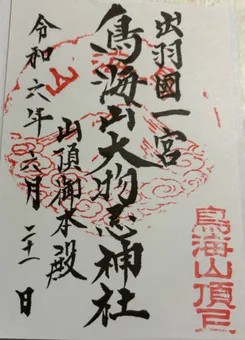 出羽國一宮
鳥海山大物忌神社
山頂御本殿
令和六年六月二十一日
鳥海山頂